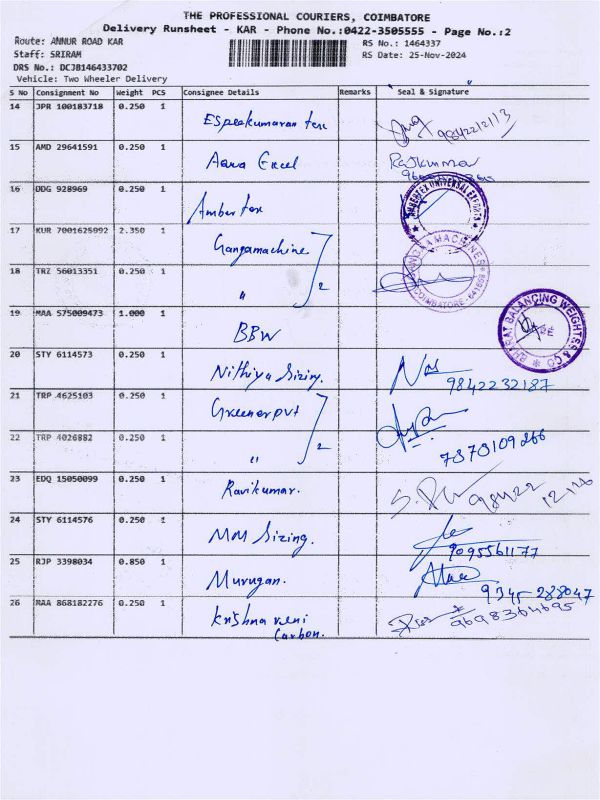 THE PROFESSIONAL COURIERS, COIMBATORE
Delivery Runsheet - KAR - Phone No.:0422-3505555 - Page No.:2
Route: ANNUR ROAD KAR RS No.: 1464337
Staff: SRIRAM RS Date: 25-Nov-2024
DRS No.: DCJB146433702
Vehicle: Two Wheeler Delivery
S No Consignment No Weight PCS Consignee Details Remarks Seal & Signature
14 JPR 100183718 0.250 1 ESpeekumaran tex 9842212113
15 AMD 29641591 0.250 1 Aava Excel Rajkumar
16 DDG 928969 0.250 1 Amber tex
17 KUR 7001625092 2.350 1 Gangamachine
18 TRZ 56013351 0.250 1 " 2
COIMBATORE
19 MAA 575009473 1.000 1 BBW
BHARAT BALANCING WEIGHTS & CO
20 STY 6114573 0.250 1 Nithiya Sizing. 9842232187
21 TRP 4625103 0.250 1 Greener pvt
22 TRP 4026882 0.250 1 " 2 7373109266
23 EDQ 15050099 0.250 1 Ravikumar. 98422 12116
24 STY 6114576 0.250 1 MM Sizing. 9095561177
25 RJP 3398034 0.850 1 Murugan. 9345 288047
26 MAA 868182276 0.250 1 Krishna veni 9698364695
Carbon.